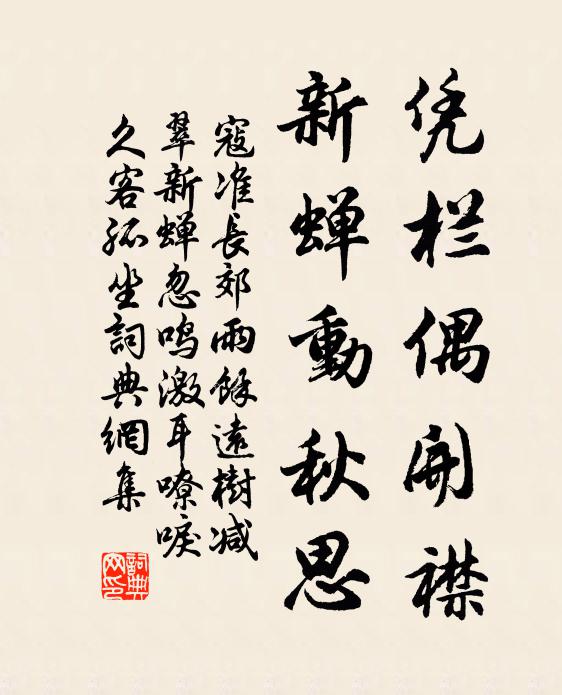 凭栏偶開襟
新蝉動秋思
寇准長郊雨餘遠樹减
翠新蝉忽鳴激耳嘹唳
久客孤坐詞典網集
詞典
网印